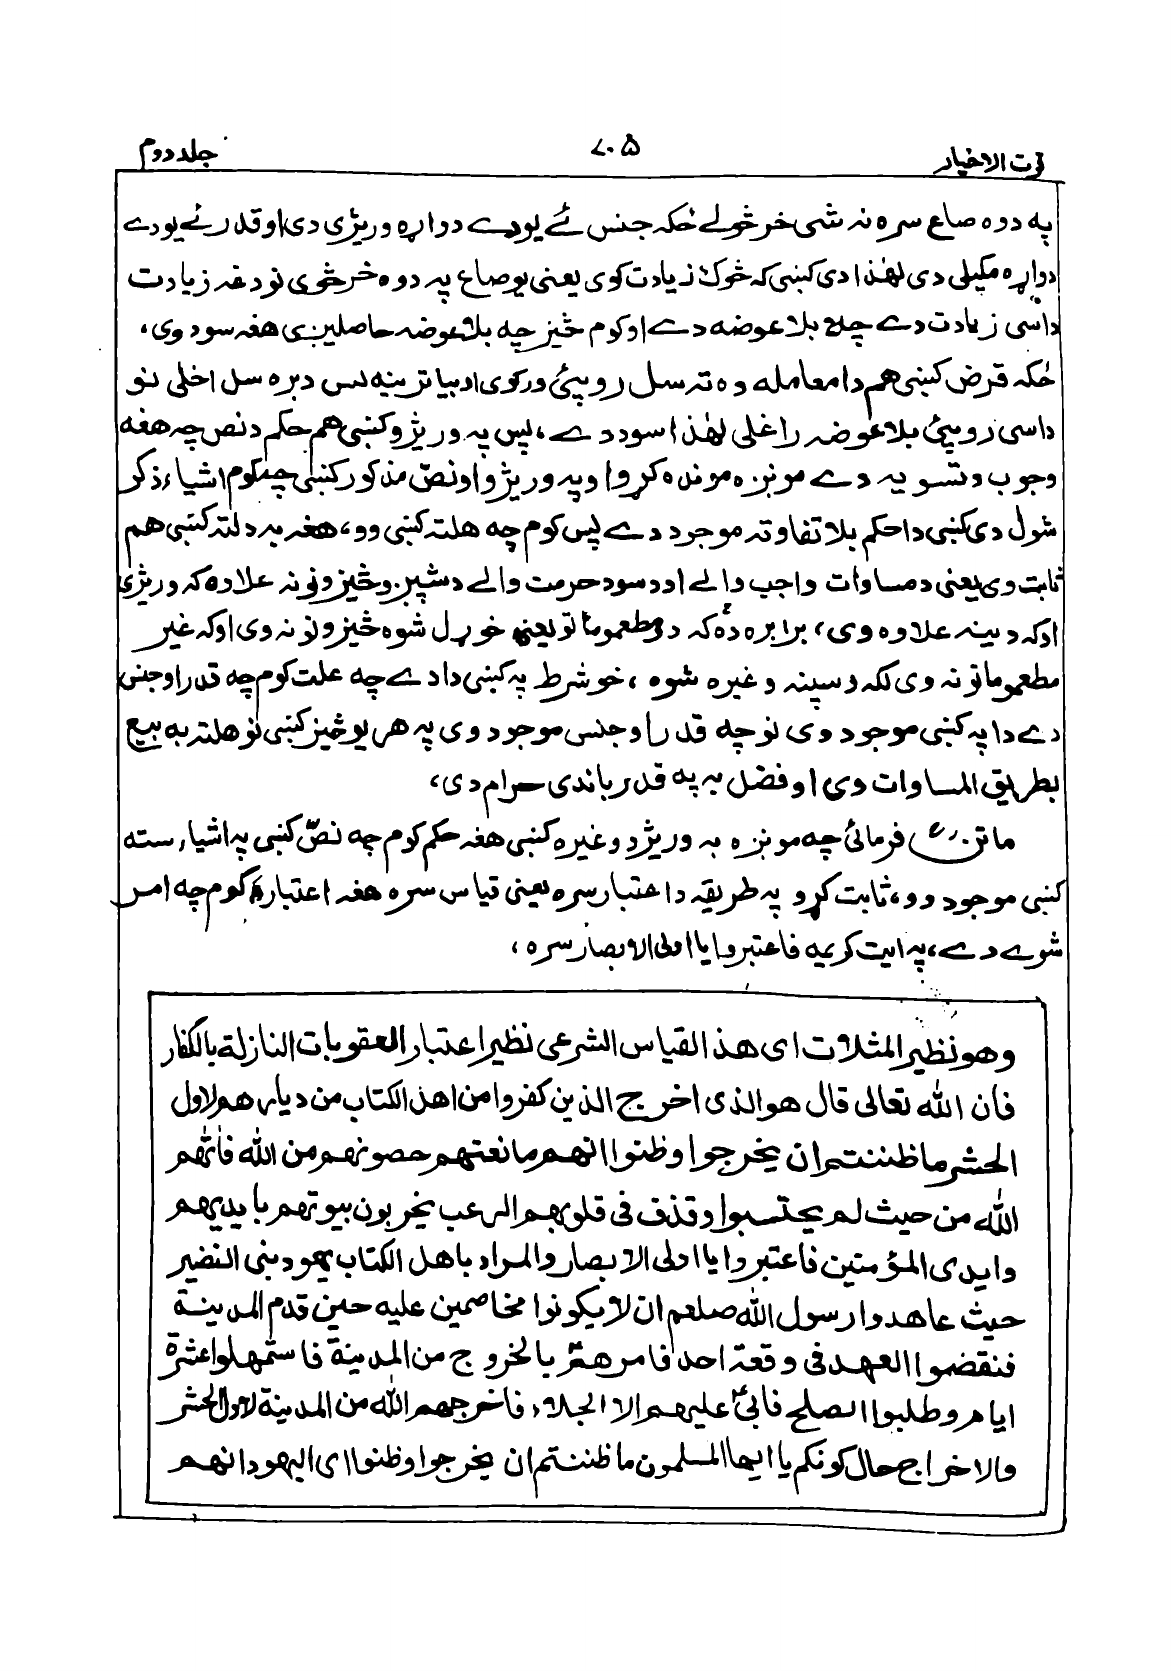 قرت الاخیار ۷۰۵ جلد دوم
په دوه صاع سره نه شی خرڅولے ځکه جنس ئے یو دے دواړه وریژی دی او قدر ئے یو دے
دواړه مکیلی دی لهٰذا دی کښی که څوک زیادت کوی یعنی یو صاع په دوه خرڅوی نو دغه زیادت
داسی زیادت دے چه بلا عوضه دے او کوم څیز چه بلا عوضه حاصلیږی هغه سود وی،
ځکه قرض کښی هم دا معامله وه ته سل روپئ ورکوی او بیا ترینه لس دپره سل اخلی نو
داسی روپئ بلا عوضه راغلی لهٰذا سود دے، پس په وریژو کښی هم حکم د نص چه هغه
وجوب د تسویه دے مونږه موندہ کړو او په وریژو او نصّ مذکور کښی چه کوم اشیاء ذکر
شول دی کښی دا حکم بلا تفاوته موجود دے پس کوم چه هلته کښی وو، هغه به دلته کښی هم
ثابت وی یعنی د مساوات واجب والے او د سود حرمت والے د شپږو څیزونو نه علاوه که وریژی
او که د بینه علاوه وی، برابره ده که د مطعوماتو یعنی خوړل شوه څیزونو نه وی او که غیر
مطعوماتو نه وی لکه د سپنه وغیره شوه، خو شرط په کښی دا دے چه علت کوم چه قدر او جنس
دے دا په کښی موجود وی نو چه قدر او جنس موجود وی په هر یو څیز کښی نو هلته به بیع
بطریق المساوات وی او فضل به په قدر باندی حرام وی،
ماتنؒ فرمائی چه مونږه به وریژو وغیره کښی هغه حکم کوم چه نصّ کښی په اشیاء سته
کښی موجود وو، ثابت کړو په طریقه د اعتبار سره یعنی قیاس سره هغه اعتبار کوم چه امر
شوے دے، په ایت کریمه فاعتبروا یا اولی الابصار سره،
وهو نظیر المثلات ای هذا القیاس الشرعی نظیر اعتبار العقوبات النازلة بالکفار
فان الله تعالی قال هو الذی اخرج الذین کفروا من اهل الکتاب من دیارهم لاول
الحشر ما ظننتم ان یخرجوا وظنوا انهم مانعتهم حصونهم من الله فاتٰهم
الله من حیث لم یحتسبوا وقذف فی قلوبهم الرعب یخربون بیوتهم بایدیهم
وایدی المؤمنین فاعتبروا یا اولی الابصار والمراد باهل الکتاب یهود بنی النضیر
حیث عاهدوا رسول الله صلعم ان لا یکونوا مخاصمین علیه حین قدم المدینة
فنقضوا العهد فی وقعة احد فامرهم بالخروج من المدینة فاستمهلوا عشرة
ایام وطلبوا الصلح فابیٰ علیهم الا الجلاء فاخرجهم الله من المدینة لاول الحشر
والاخراج حال کونکم یا ایها المسلمون ما ظننتم ان یخرجوا وظنوا ای الیهود انهم